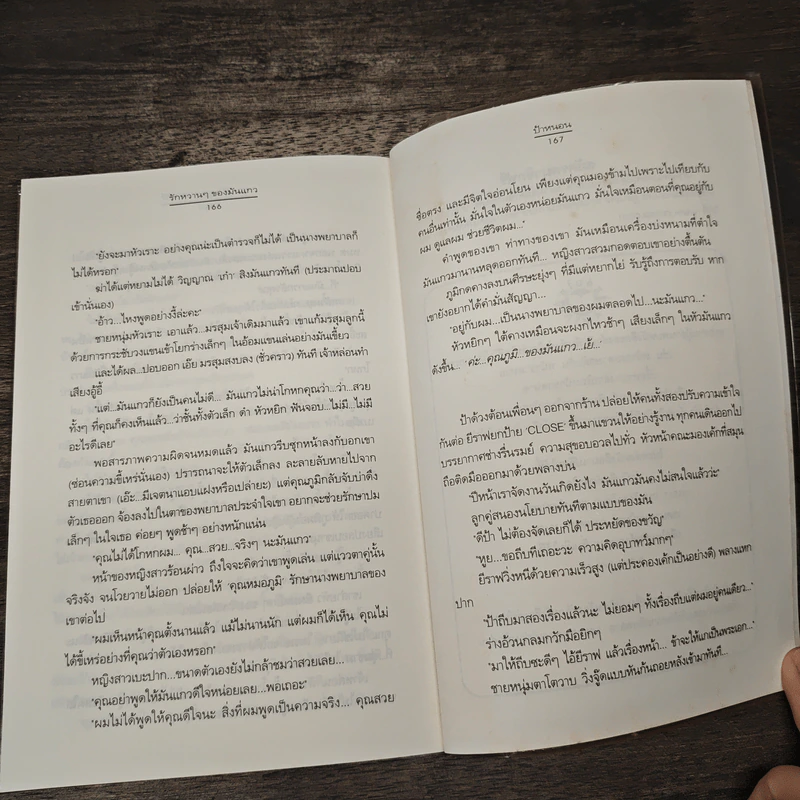 รักหวานๆ ของมันแกว
166
"ยังจะมาหัวเราะ อย่างคุณน่ะเป็นตำรวจก็ไม่ได้ เป็นนางพยาบาลก็
ไม่ได้หรอก"
ฆ่าได้แต่หยามไม่ได้ วิญญาณ 'เก๋า' สิงมันแกวทันที (ประมาณปอบ
เข้านั่นเอง)
"อ้าว...ไหงพูดอย่างงี้ล่ะคะ"
ชายหนุ่มหัวเราะ เอาแล้ว...มรสุมเจ้าเดิมมาแล้ว เขาแก้มรสุมลูกนี้
ด้วยการกระชับวงแขนเข้าโยกร่างเล็กๆ ในอ้อมแขนเล่นอย่างมันเขี้ยว
และได้ผล...ปอบออก เอ๊ย มรสุมสงบลง (ชั่วคราว) ทันที เจ้าหล่อนทำ
เสียงอู้อี้
"แต่...มันแกวก็ยังเป็นคนไม่ดี... มันแกวไม่น่าโกหกคุณว่า...ว่า...สวย
ทั้งๆ ที่คุณก็คงเห็นแล้ว...ว่าชั้นทั้งตัวเล็ก ดำ หัวหยิก ฟันจอบ...ไม่มี...ไม่มี
อะไรดีเลย"
พอสารภาพความผิดจนหมดแล้ว มันแกวรีบซุกหน้าลงกับอกเขา
(ซ่อนความขี้เหร่นั่นเอง) ปรารถนาจะให้ตัวเล็กลง ละลายลับหายไปจาก
สายตาเขา (เอ๊ะ...มีเจตนาแอบแฝงหรือเปล่ายะ) แต่คุณภูมิกลับจับบ่าดึง
ตัวเธอออก จ้องลงไปในตาของพยาบาลประจำใจเขา อยากจะช่วยรักษาปม
เล็กๆ ในใจเธอ ค่อยๆ พูดช้าๆ อย่างหนักแน่น
"คุณไม่ได้โกหกผม... คุณ..สวย...จริงๆ นะมันแกว"
หน้าของหญิงสาวร้อนผ่าว ถึงใจจะคิดว่าเขาพูดเล่น แต่แววตาคู่นั้น
จริงจัง จนโวยวายไม่ออก ปล่อยให้ 'คุณหมอภูมิ' รักษานางพยาบาลของ
เขาต่อไป
"ผมเห็นหน้าคุณตั้งนานแล้ว แม้ไม่นานนัก แต่ผมก็ได้เห็น คุณไม่
ได้ขี้เหร่อย่างที่คุณว่าตัวเองหรอก"
หญิงสาวเบะปาก...ขนาดตัวเองยังไม่กล้าชมว่าสวยเลย...
"คุณอย่าพูดให้มันแกวดีใจหน่อยเลย...พอเถอะ"
"ผมไม่ได้พูดให้คุณดีใจนะ สิ่งที่ผมพูดเป็นความจริง... คุณสวย
ป้าหนอน
167
ซื่อตรง และมีจิตใจอ่อนโยน เพียงแต่คุณมองข้ามไปเพราะไปเทียบกับ
คนอื่นเท่านั้น มั่นใจในตัวเองหน่อยมันแกว มั่นใจเหมือนตอนที่คุณอยู่กับ
ผม ดูแลผม ช่วยชีวิตผม..."
คำพูดของเขา ท่าทางของเขา มันเหมือนเครื่องบ่งหนามที่ตำใจ
มันแกวมานานหลุดออกทันที... หญิงสาวสวมกอดตอบเขาอย่างตื้นตัน
ภูมิกดคางลงบนศีรษะยุ่งๆ ที่มีแต่หยากไย่ รับรู้ถึงการตอบรับ หาก
เขายังอยากได้คำมั่นสัญญา...
"อยู่กับผม...เป็นนางพยาบาลของผมตลอดไป...นะมันแกว..."
หัวหยิกๆ ใต้คางเหมือนจะผงกไหวช้าๆ เสียงเล็กๆ ในหัวมันแกว
ดังขึ้น... 'ค่ะ...คุณภูมิ...ของมันแกว...เย้...'
ป้าด้วงต้อนเพื่อนๆ ออกจากร้าน ปล่อยให้คนทั้งสองปรับความเข้าใจ
กันต่อ ยีราฟยกป้าย 'CLOSE' ขึ้นมาแขวนให้อย่างรู้งาน ทุกคนเดินออกไป
บรรยากาศช่างรื่นรมย์ ความสุขอบอวลไปทั่ว หัวหน้าคณะมองเค้กที่สมุน
ถือติดมือออกมาด้วยพลางบ่น
"ปีหน้าเราจัดงานวันเกิดยังไง มันแกวมันคงไม่สนใจแล้วว่ะ"
ลูกคู่สนองนโยบายทันทีตามแบบของมัน
"ดีป้า ไม่ต้องจัดเลยก็ได้ ประหยัดของขวัญ"
"หูย...ขอถีบทีเถอะวะ ความคิดอุบาทว์มากๆ"
ยีราฟวิ่งหนีด้วยความเร็วสูง (แต่ประคองเค้กเป็นอย่างดี) พลางแหก
ปาก
"ป้าถีบมาสองเรื่องแล้วนะ ไม่ยอมๆ ทั้งเรื่องถีบแต่ผมอยู่คนเดียว..."
ร่างอ้วนกลมกวักมือยิกๆ
"มาให้ถีบซะดีๆ ไอ้ยีราฟ แล้วเรื่องหน้า... ข้าจะให้แกเป็นพระเอก..."
ชายหนุ่มตาโตวาบ วิ่งจู๊ดแบบหันก้นถอยหลังเข้ามาทันที...